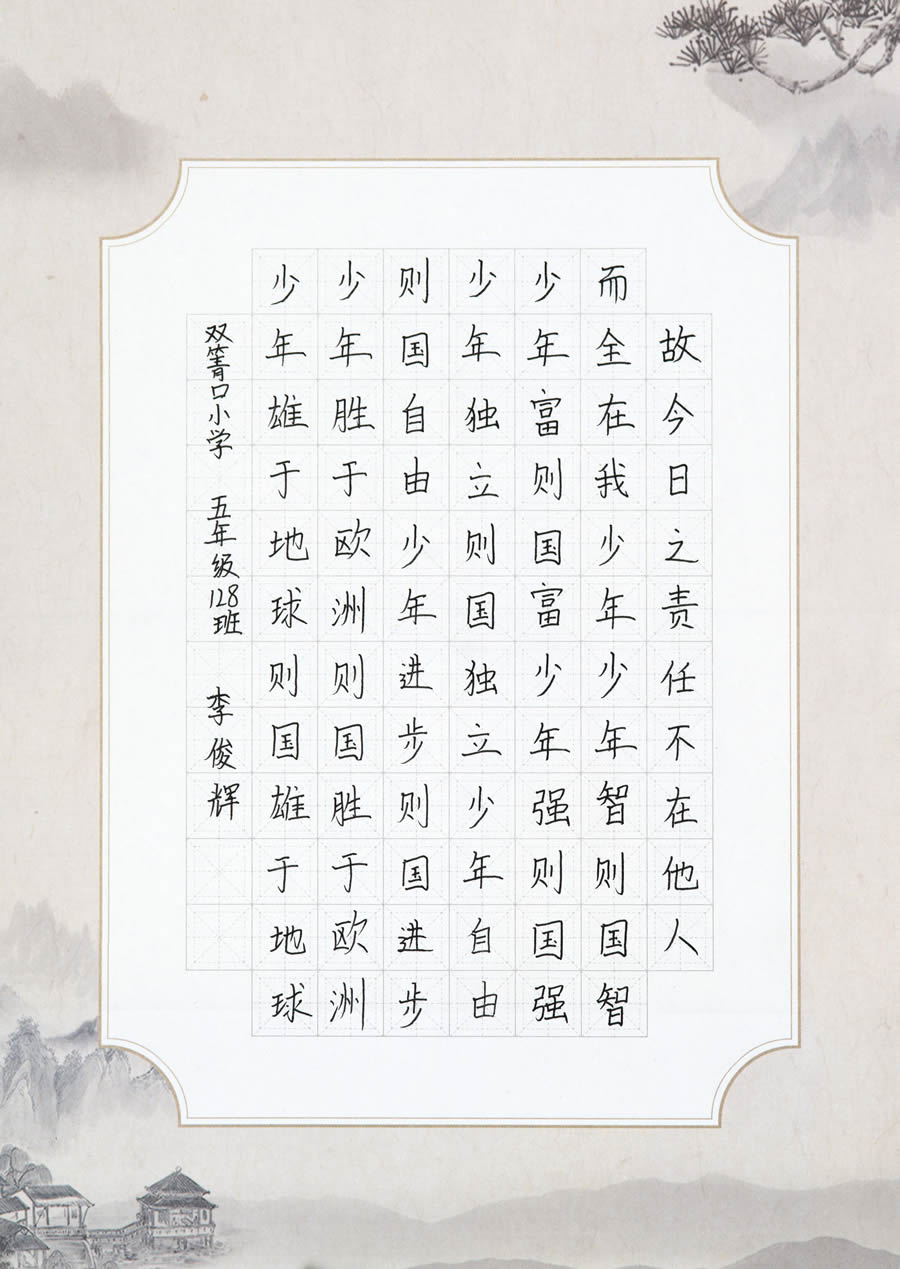 故今日之责任不在他人
而全在我少年少年智则国智
少年富则国富少年强则国强
少年独立则国独立少年自由
则国自由少年进步则国进步
少年胜于欧洲则国胜于欧洲
少年雄于地球则国雄于地球
双箐口小学 五年级128班 李俊辉